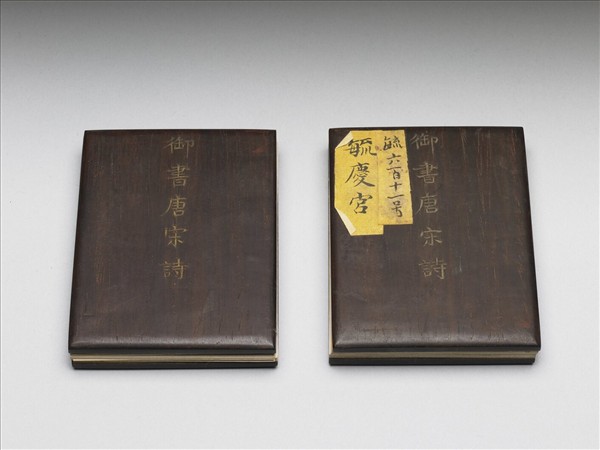 御書唐宋詩
御書唐宋詩
毓六百十一号
毓慶宮